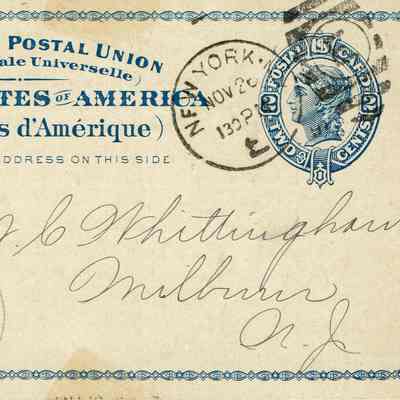 POSTAL UNION
ale Universelle)
TES OF AMERICA
s d'Amérique)
ADDRESS ON THIS SIDE
NEW YORK
NOV 26
POSTAL U.S. CARD
TWO CENTS
2 2
J. C. Whittingham
Milburn
N. J.